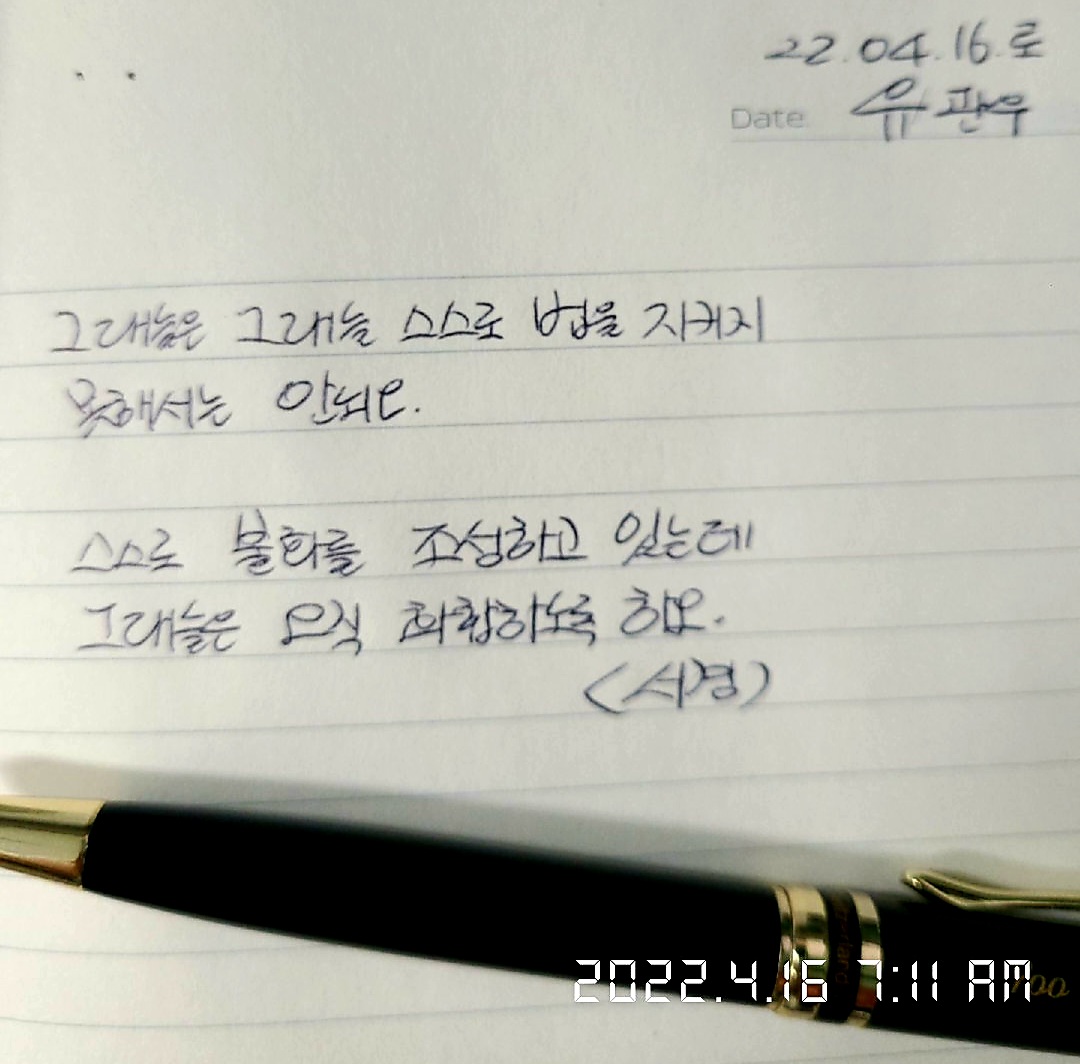 22.04.16.토
Date 유판우
그대들은 그대들 스스로 법을 지키지
못해서는 안되오.
스스로 불화를 조성하고 있는데
그대들은 오직 화합하도록 하오.
(서경)
2022.4.16 7:11 AM